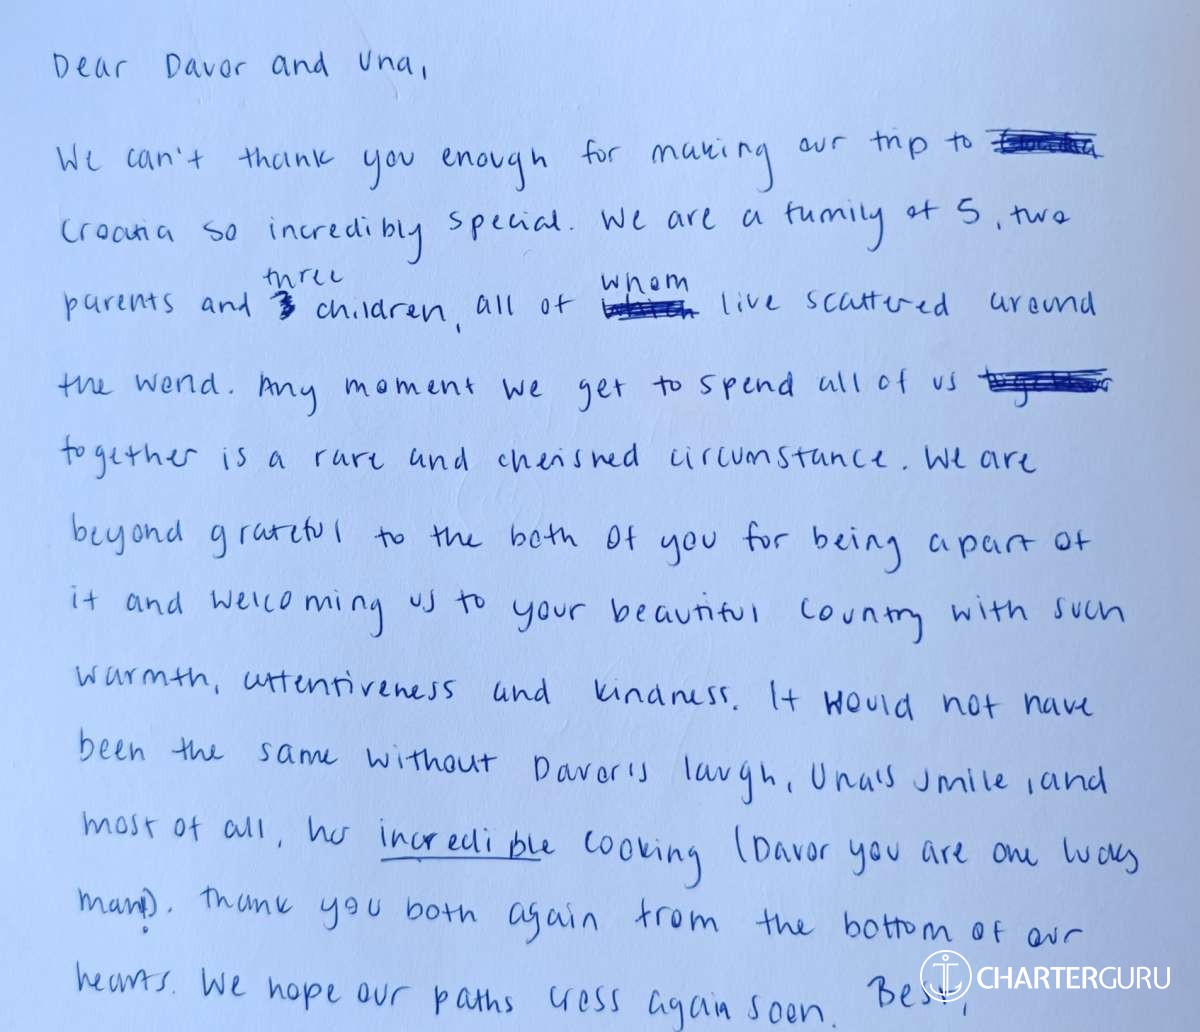 Dear Davor and Una,
We can't thank you enough for making our trip to
Croatia so incredibly special. We are a family of 5, two
three whom
parents and 3 children, all of which live scattered around
the world. Any moment we get to spend all of us together
together is a rare and cherished circumstance. We are
beyond grateful to the both of you for being apart of
it and welcoming us to your beautiful country with such
warmth, attentiveness and kindness. It would not have
been the same without Davor's laugh, Una's smile, and
most of all, her incredible cooking (Davor you are one lucky
man!). Thank you both again from the bottom of our
hearts. We hope our paths cross again soon. Best,
CHARTERGURU